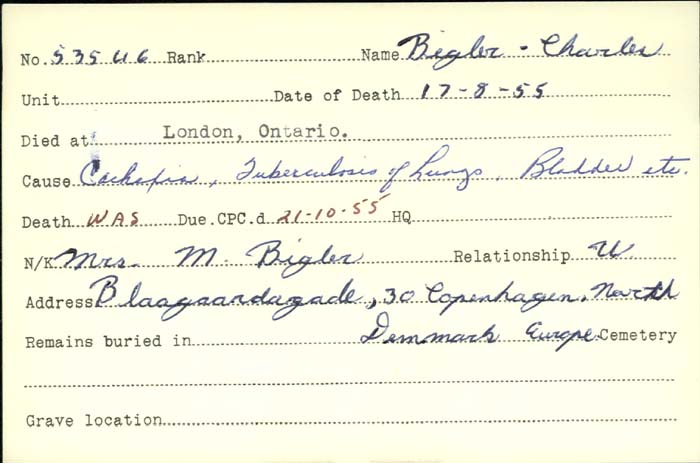 No. 53546 Rank Name Bigler - Charles
Unit Date of Death 17-8-55
Died at London, Ontario.
Cause Cachexia, Tuberculosis of Lungs, Bladder etc.
Death WAS Due. CPC.d 21-10-55 HQ
N/K Mrs. M. Bigler Relationship W.
Address Blaagaardagade, 30 Copenhagen, North
Remains buried in Demmark Europe. Cemetery
Grave location